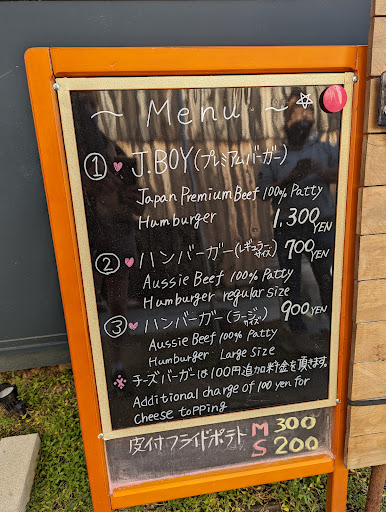 ~ Menu ~
① J.BOY(プレミアムバーガー)
Japan Premium Beef 100% Patty
Humburger 1,300 YEN
② ハンバーガー(レギュラーサイズ) 700 YEN
Aussie Beef 100% Patty
Humburger regular size
③ ハンバーガー(ラージサイズ) 900 YEN
Aussie Beef 100% Patty
Humburger Large Size
※チーズバーガーは100円追加料金を頂きます。
Additional charge of 100 yen for
cheese topping
皮付フライドポテト M 300
S 200